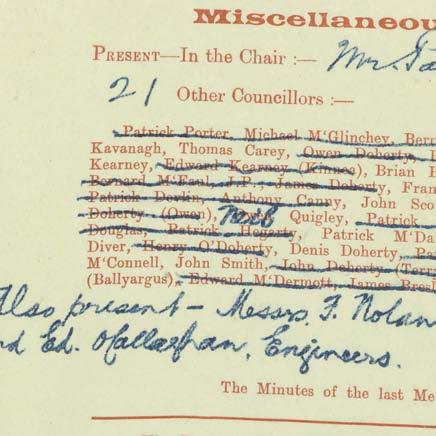 Miscellaneou
PRESENT—In the Chair :— Mr.
21 Other Councillors :—
Patrick Porter, Michael M'Glinchey, Bern
Kavanagh, Thomas Carey, Owen Doherty,
Kearney, Edward Kearney (Kinnea), Brian
Bernard M'Faul, J.P.; James Doherty, Fran
Patrick Devlin, Anthony Canny, John Sco
Doherty (Owen), Neil Quigley, Patrick
Douglas, Patrick Hegarty, Patrick M'Da
Diver, Henry O'Doherty, Denis Doherty, Pa
M'Connell, John Smith, John Doherty (Terr
(Ballyargus), Edward M'Dermott, James Bresl
Also present – Messrs. F. Nolan
nd Ed. O'Callaghan, Engineers.
The Minutes of the last Mee